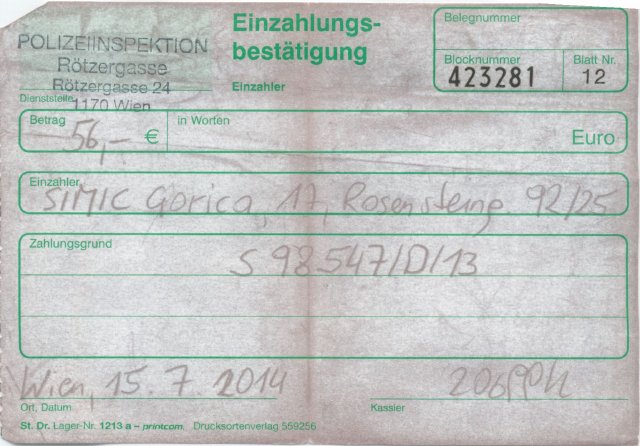 POLIZEIINSPEKTION
Rötzergasse
Rötzergasse 24
1170 Wien
Dienststelle
Einzahlungs-
bestätigung
Einzahler
Belegnummer
Blocknummer
423281
Blatt Nr.
12
Betrag
56,– €
in Worten
Euro
Einzahler
SIMIC Gorica, 17, Rosensteing. 92/25
Zahlungsgrund
S 98547/D/13
Wien, 15.7.2014
Ort, Datum
Kassier
St. Dr. Lager-Nr. 1213 a – printcom. Drucksortenverlag 559256